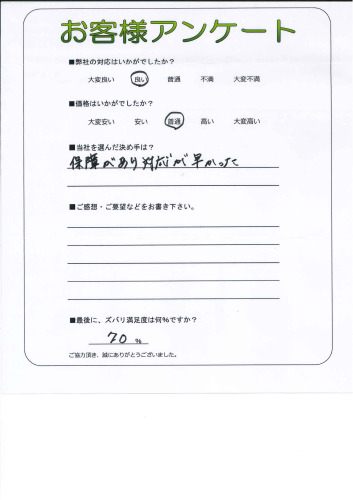 お客様アンケート
■弊社の対応はいかがでしたか？
大変良い 良い 普通 不満 大変不満
■価格はいかがでしたか？
大変安い 安い 普通 高い 大変高い
■当社を選んだ決め手は？
保障があり対応が早かった
■ご感想・ご要望などをお書き下さい。
■最後に、ズバリ満足度は何%ですか？
70 %
ご協力頂き、誠にありがとうございました。